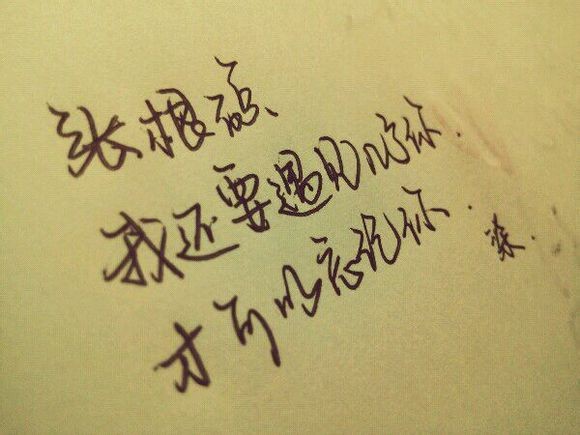 张根硕、
我还要遇见几次你.
才可以忘记你.